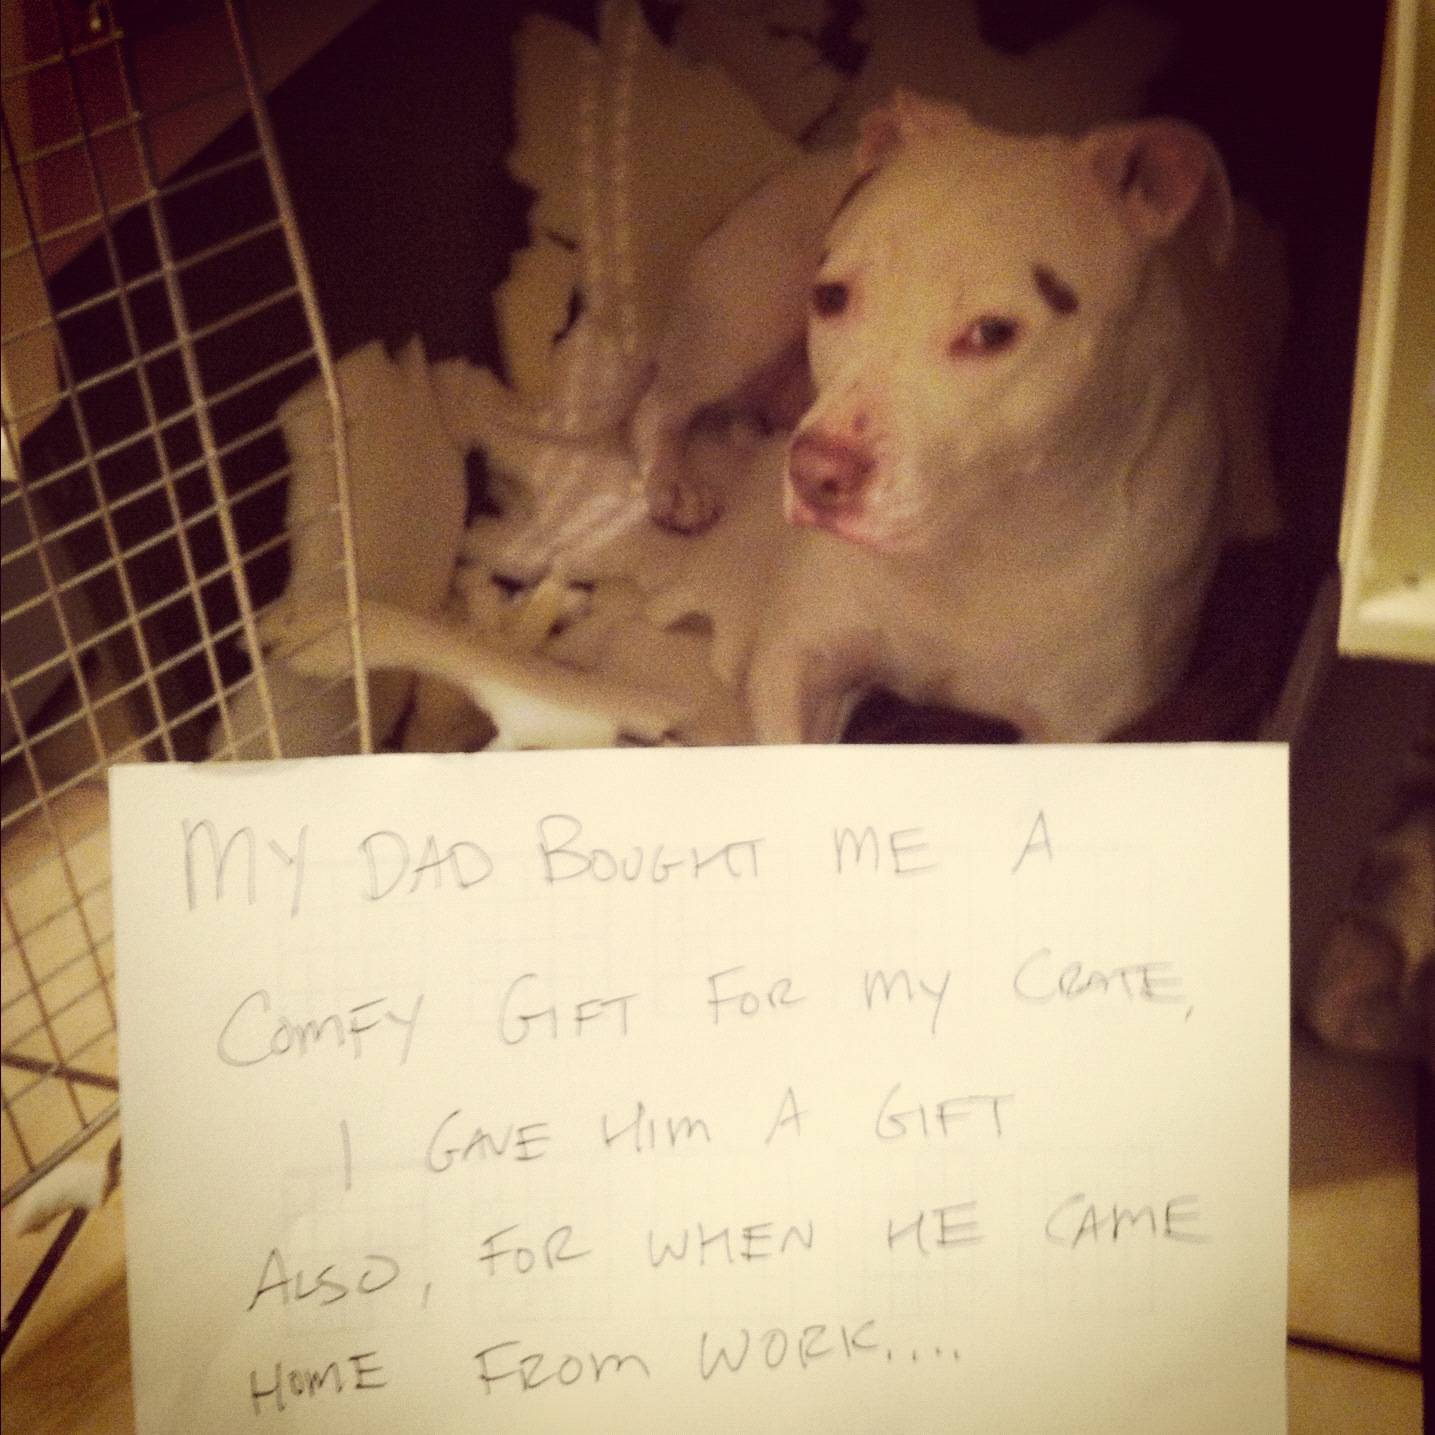 MY DAD BOUGHT ME A
COMFY GIFT FOR MY CRATE,
I GAVE HIM A GIFT
ALSO, FOR WHEN HE CAME
HOME FROM WORK....